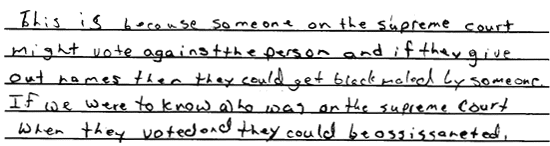 This is because someone on the supreme court
might vote against the person and if they give
out names then they could get blackmaled by someone.
If we were to know who was on the supreme Court
when they voted and they could be assissaneted.